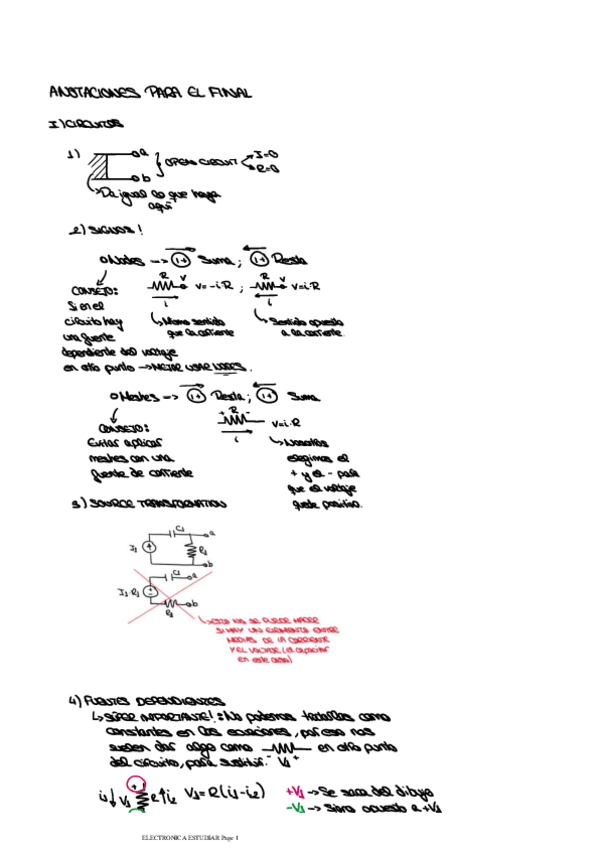 ANOTACIONES PARA EL FINAL
I) CIRCUITOS
1)
a
b
OPEN CIRCUIT
I=0
R=0
Da igual lo que haya
aquí
2) SIGNOS!
Nodes --> Suma ; Resta
R V V=-i·R ; R V V=i·R
i
i
Mismo sentido
que la corriente
Sentido opuesto
a la corriente.
CONSEJO:
Si en el
circuito hay
una fuente
dependiente del voltaje
en otro punto -> MEJOR USAR NODES.
Meshes --> Resta ; Suma
+ R - V=i·R
i
CONSEJO:
Evitar aplicar
meshes con una
fuente de corriente
Nosotros
elegimos el
+ y el - para
que el voltaje
quede positivo.
3) SOURCE TRANSFORMATION
C1 a
I1 R1
b
C1 a
I1·R1
b
R1
ESTO NO SE PUEDE HACER
SI HAY UN ELEMENTO ENTRE
MEDIAS DE LA CORRIENTE
Y EL VOLTAJE (el capacitor
en este caso)
4) FUENTES DEPENDIENTES
SÚPER IMPORTANTE!: No podemos tratarlas como
constantes en las ecuaciones, por eso nos
suelen dar algo como en otro punto
del circuito, para sustituir. - V1 +
i1 V1 R i2 V1=R(i1-i2) +V1 -> Se saca del dibujo
-V1 -> Signo opuesto a +V1
ELECTRONICA ESTUDIAR Page 1